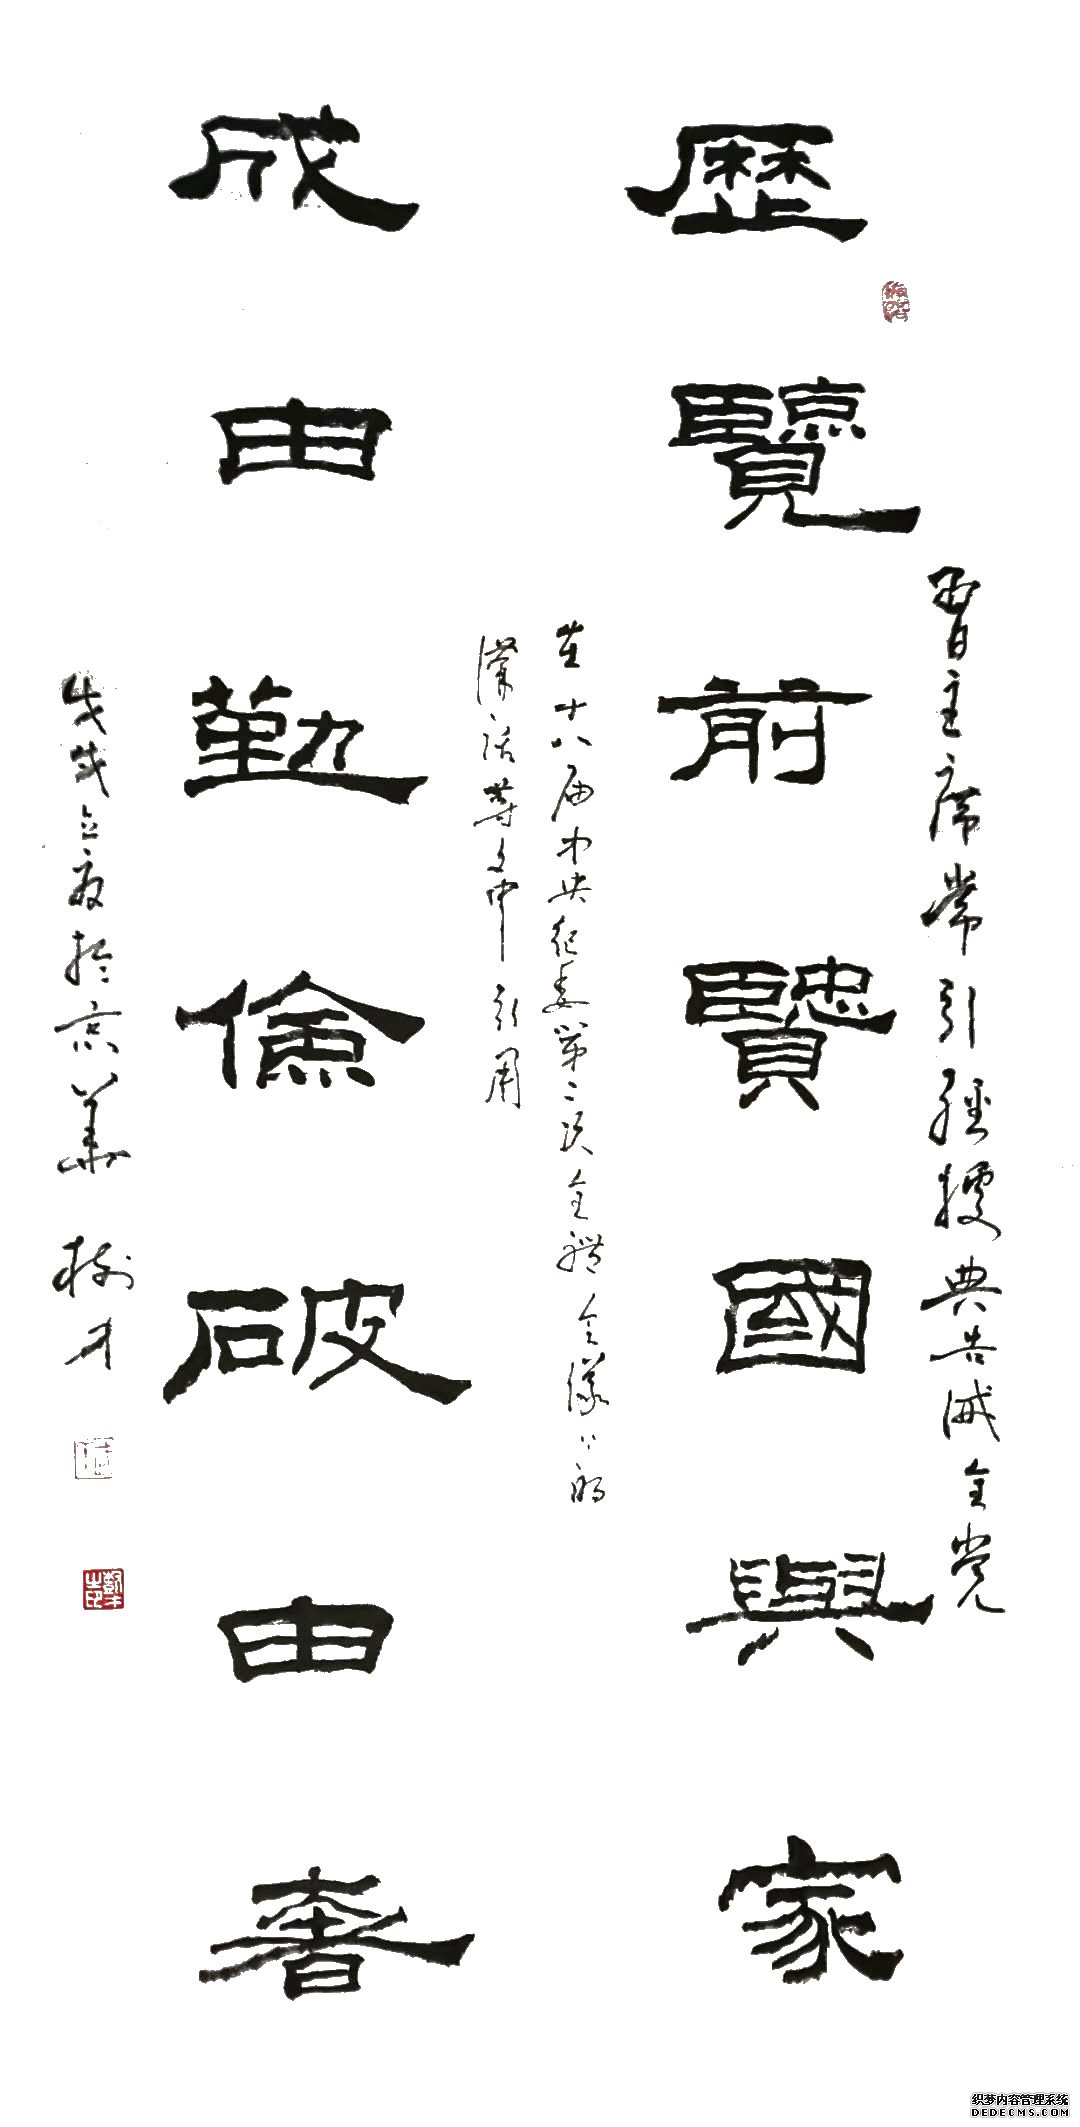 歷覽前賢國與家
習主席常引經據典告诫全党
在十八届中央纪委第二次全體會議上的
講话等文中引用
成由勤儉破由奢
戊戌立夏於京華 樹才
织梦内容管理系统
DEDECMS.COM